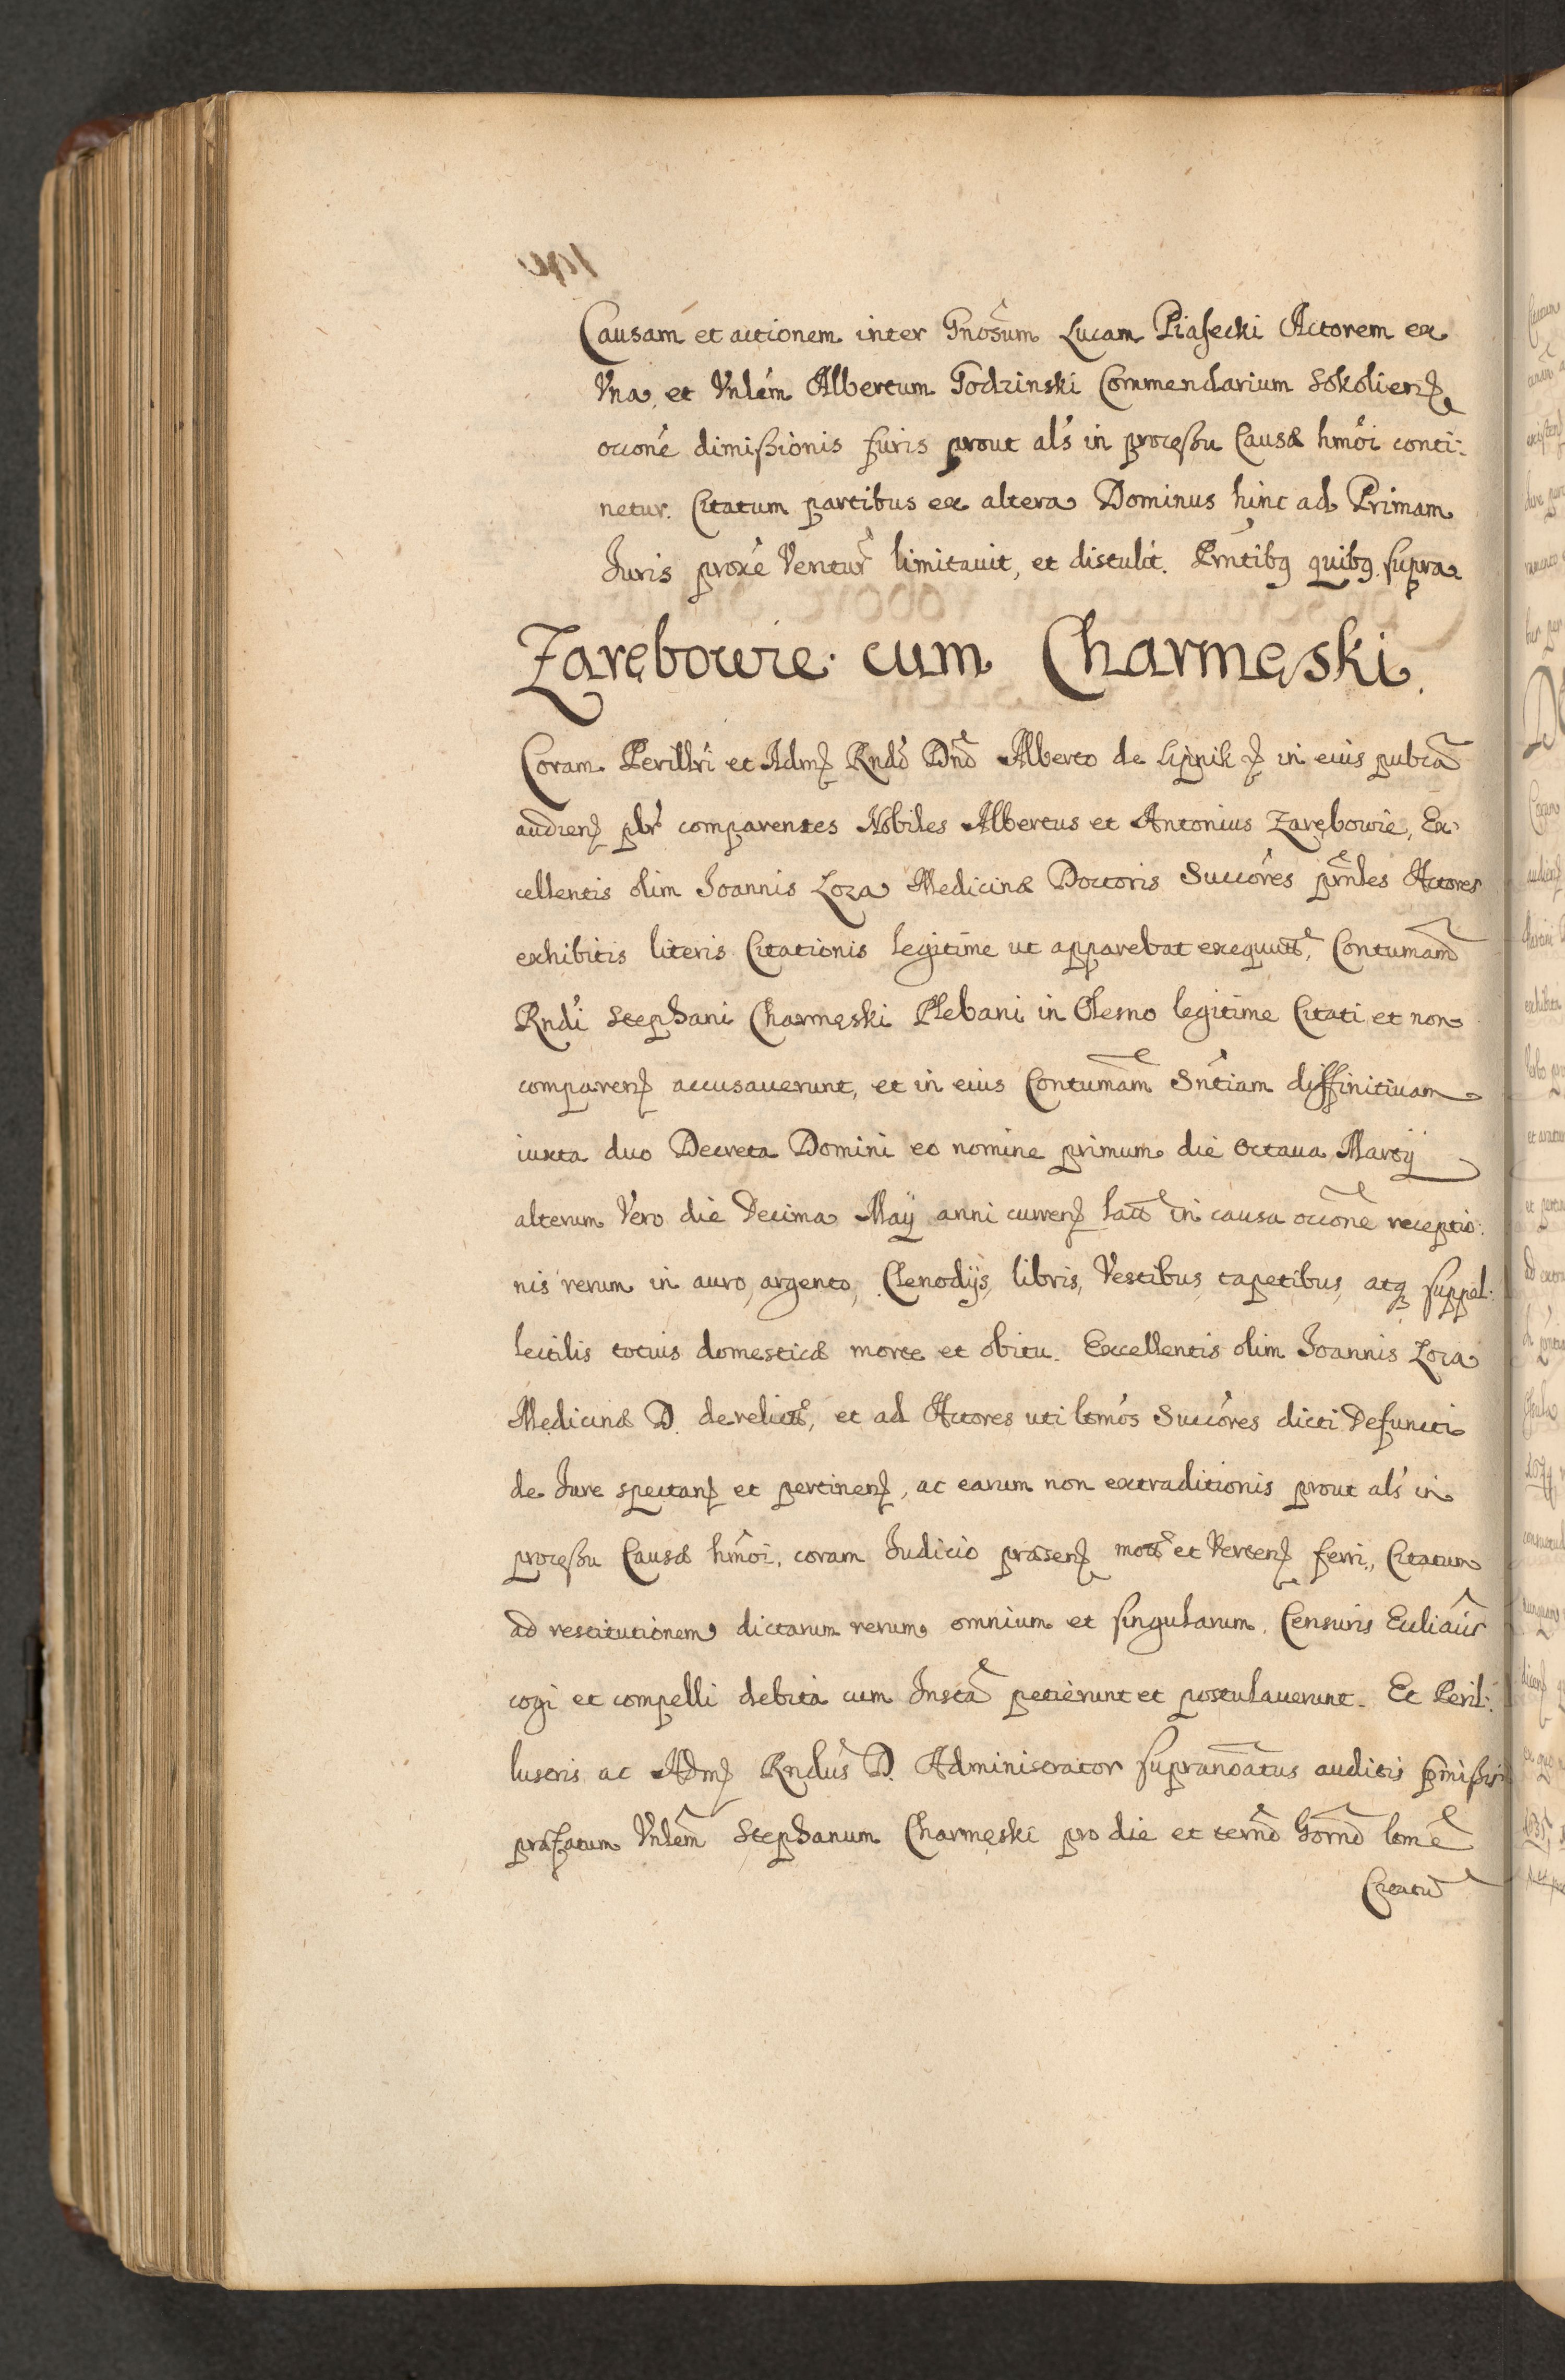 Causam et actionem inter Gnosum Lucam Piasecki Actorem ex
Vna, et Vnlem Albertum Godzinski Commendarium Sokolien
occone dimissionis Juris prout als in processu Causæ hmoi conti:
netur. Citatum partibus ex altera Dominus hinc ad Primam
Juris proxe Ventur limitauit, et distulit. Prntibq quibq supra
Zarębowie cum Charmęski.
Coram Perillri et Adm Rndo Dno Alberto de Lipnik in eius pubca
audien psr comparentes Nobiles Albertus et Antonius Zarębowie, Ex
cellentis olim Joannis Loza Medicinæ Doctoris Succores prnles Actores
exhibitis literis Citationis legitime ut apparebat exequut, Contumam
Rndi Stephani Charmęski Plebani in Olesno legitime Citati et non
comparen accusauerunt, et in eius Contumam Sntiam diffinitiuam
iuxta duo Decreta Domini eo nomine primum die octaua Martij
alterum Vero die Decima Maij anni curren lat in causa occone receptio:
nis rerum in auro, argento, Clenodijs, libris, Vestibus, tapetibus, atq suppel:
lectilis totius domesticæ morte et obitu. Excellentis olim Joannis Loza
Medicinæ D. derelict, et ad Actores uti ltmos Succores dicti Defuncti
de Jure spectan et pertinen, ac earum non extraditionis prout als in
processu Causæ hmoi, coram Judicio præsen mot et Verten ferri, Citatum
ad restitutionem dictarum rerum omnium et singularum. Censuris Eccliacis
cogi et compelli debita cum Insta petierunt et postulauerunt. Et Peril:
lustris ac Adm Rndus D. Administrator supranoatus auditis pmissis
præfatum Vnlem Stephanum Charmęski pro die et termo horno ltme
Citatu